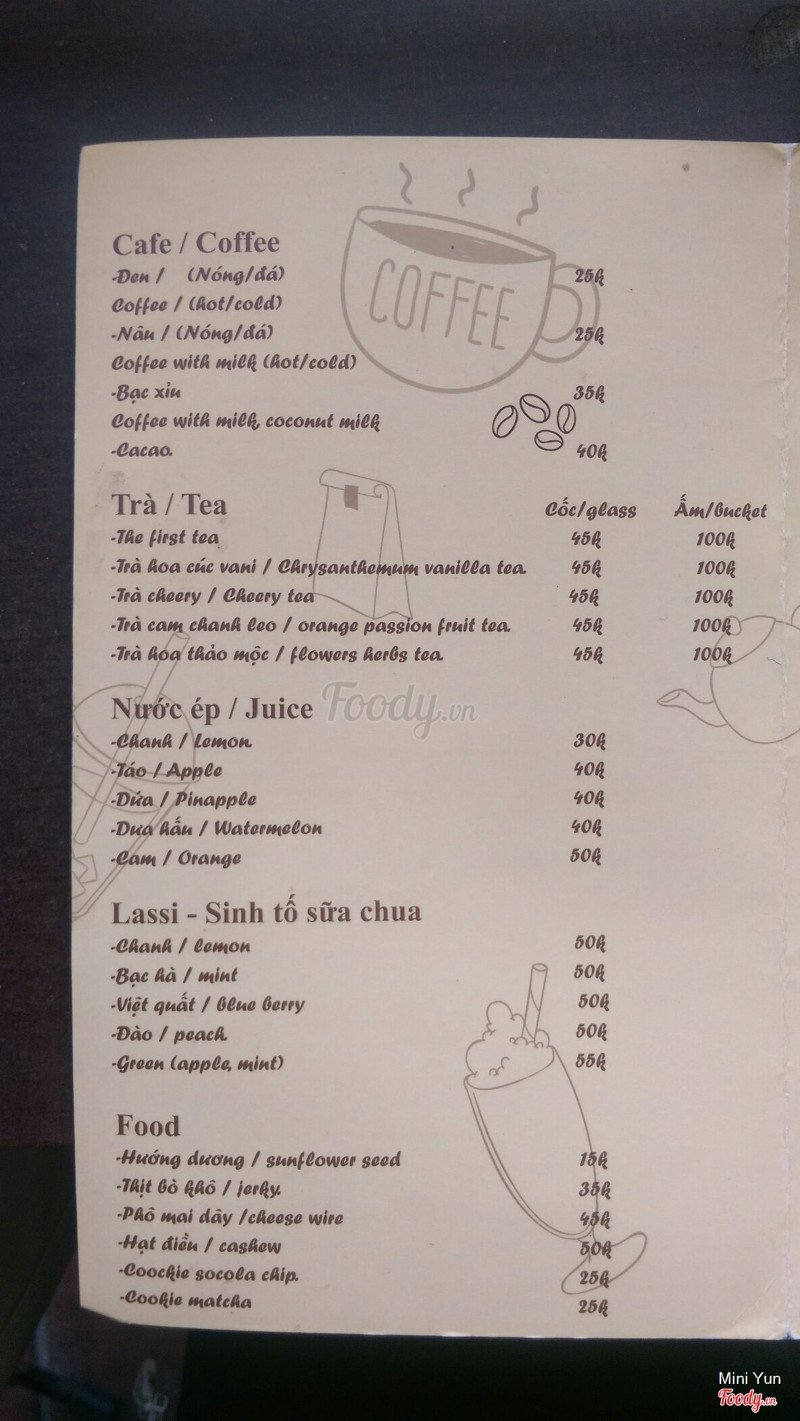 COFFEE
Cafe / Coffee
-Đen / (Nóng/đá) 25k
Coffee / (hot/cold)
-Nâu / (Nóng/đá) 25k
Coffee with milk (hot/cold)
-Bạc xỉu 35k
Coffee with milk, coconut milk
-Cacao. 40k
Trà / Tea Cốc/glass Ấm/bucket
-The first tea 45k 100k
-Trà hoa cúc vani / Chrysanthemum vanilla tea. 45k 100k
-Trà cheery / Cheery tea 45k 100k
-Trà cam chanh leo / orange passion fruit tea. 45k 100k
-Trà hóa thảo mộc / flowers herbs tea. 45k 100k
Foody.vn
Nước ép / Juice
-Chanh / Lemon. 30k
-Táo / Apple 40k
-Dứa / Pinapple 40k
-Dưa hấu / Watermelon 40k
-Cam / Orange 50k
Lassi - Sinh tố sữa chua
-Chanh / lemon 50k
-Bạc hà / mint 50k
-Việt quất / blue berry 50k
-Đào / peach. 50k
-Green (apple, mint) 55k
Food
-Hướng dương / sunflower seed 15k
-Thịt bò khô / jerky. 35k
-Phô mai dây /cheese wire 45k
-Hạt điều / cashew 50k
-Coockie socola chip. 25k
-Cookie matcha 25k
Mini Yun
Foody.vn